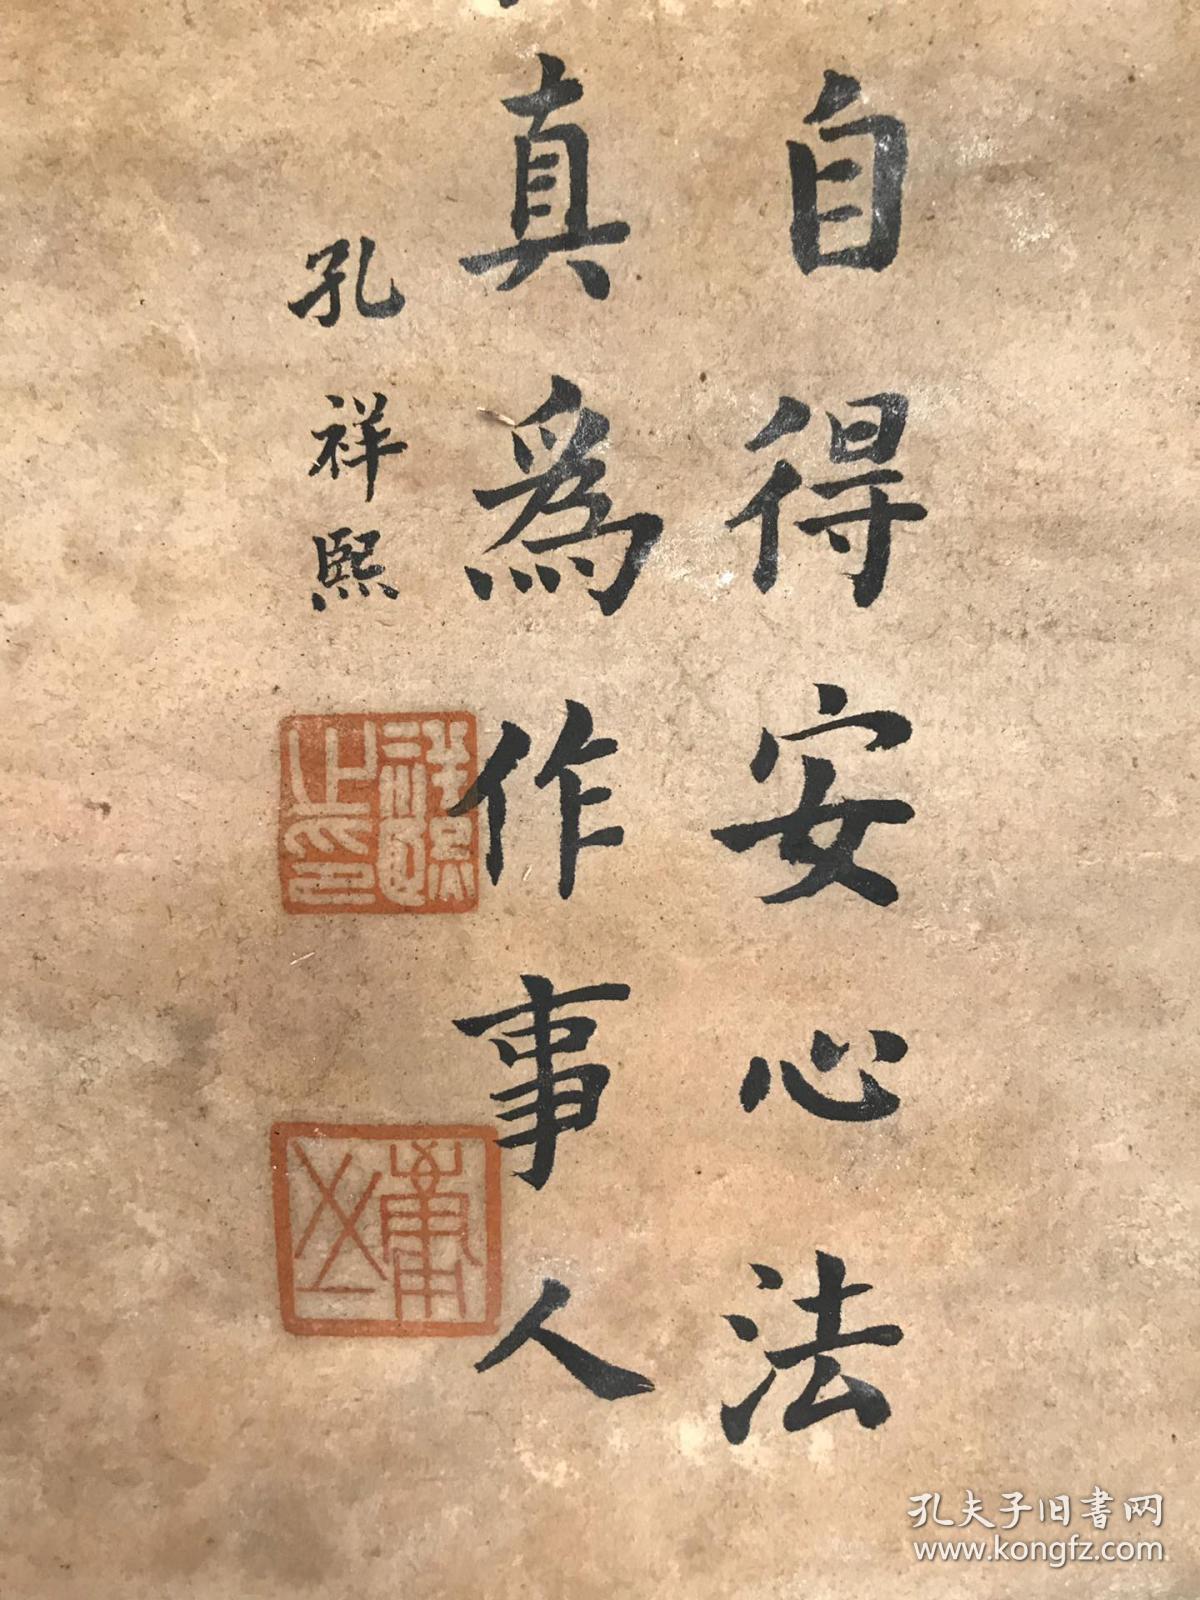 自得安心法
真為作事人
孔祥熙
孔夫子旧书网
www.kongfz.com